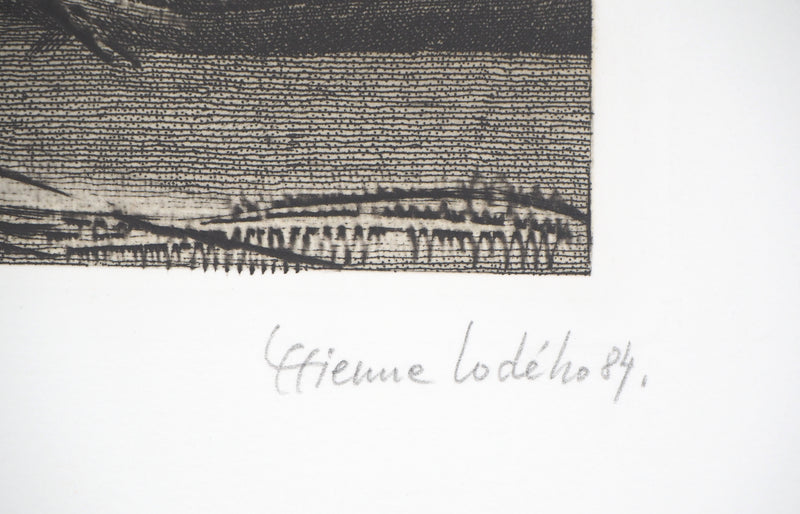 Etienne Lodého 84.